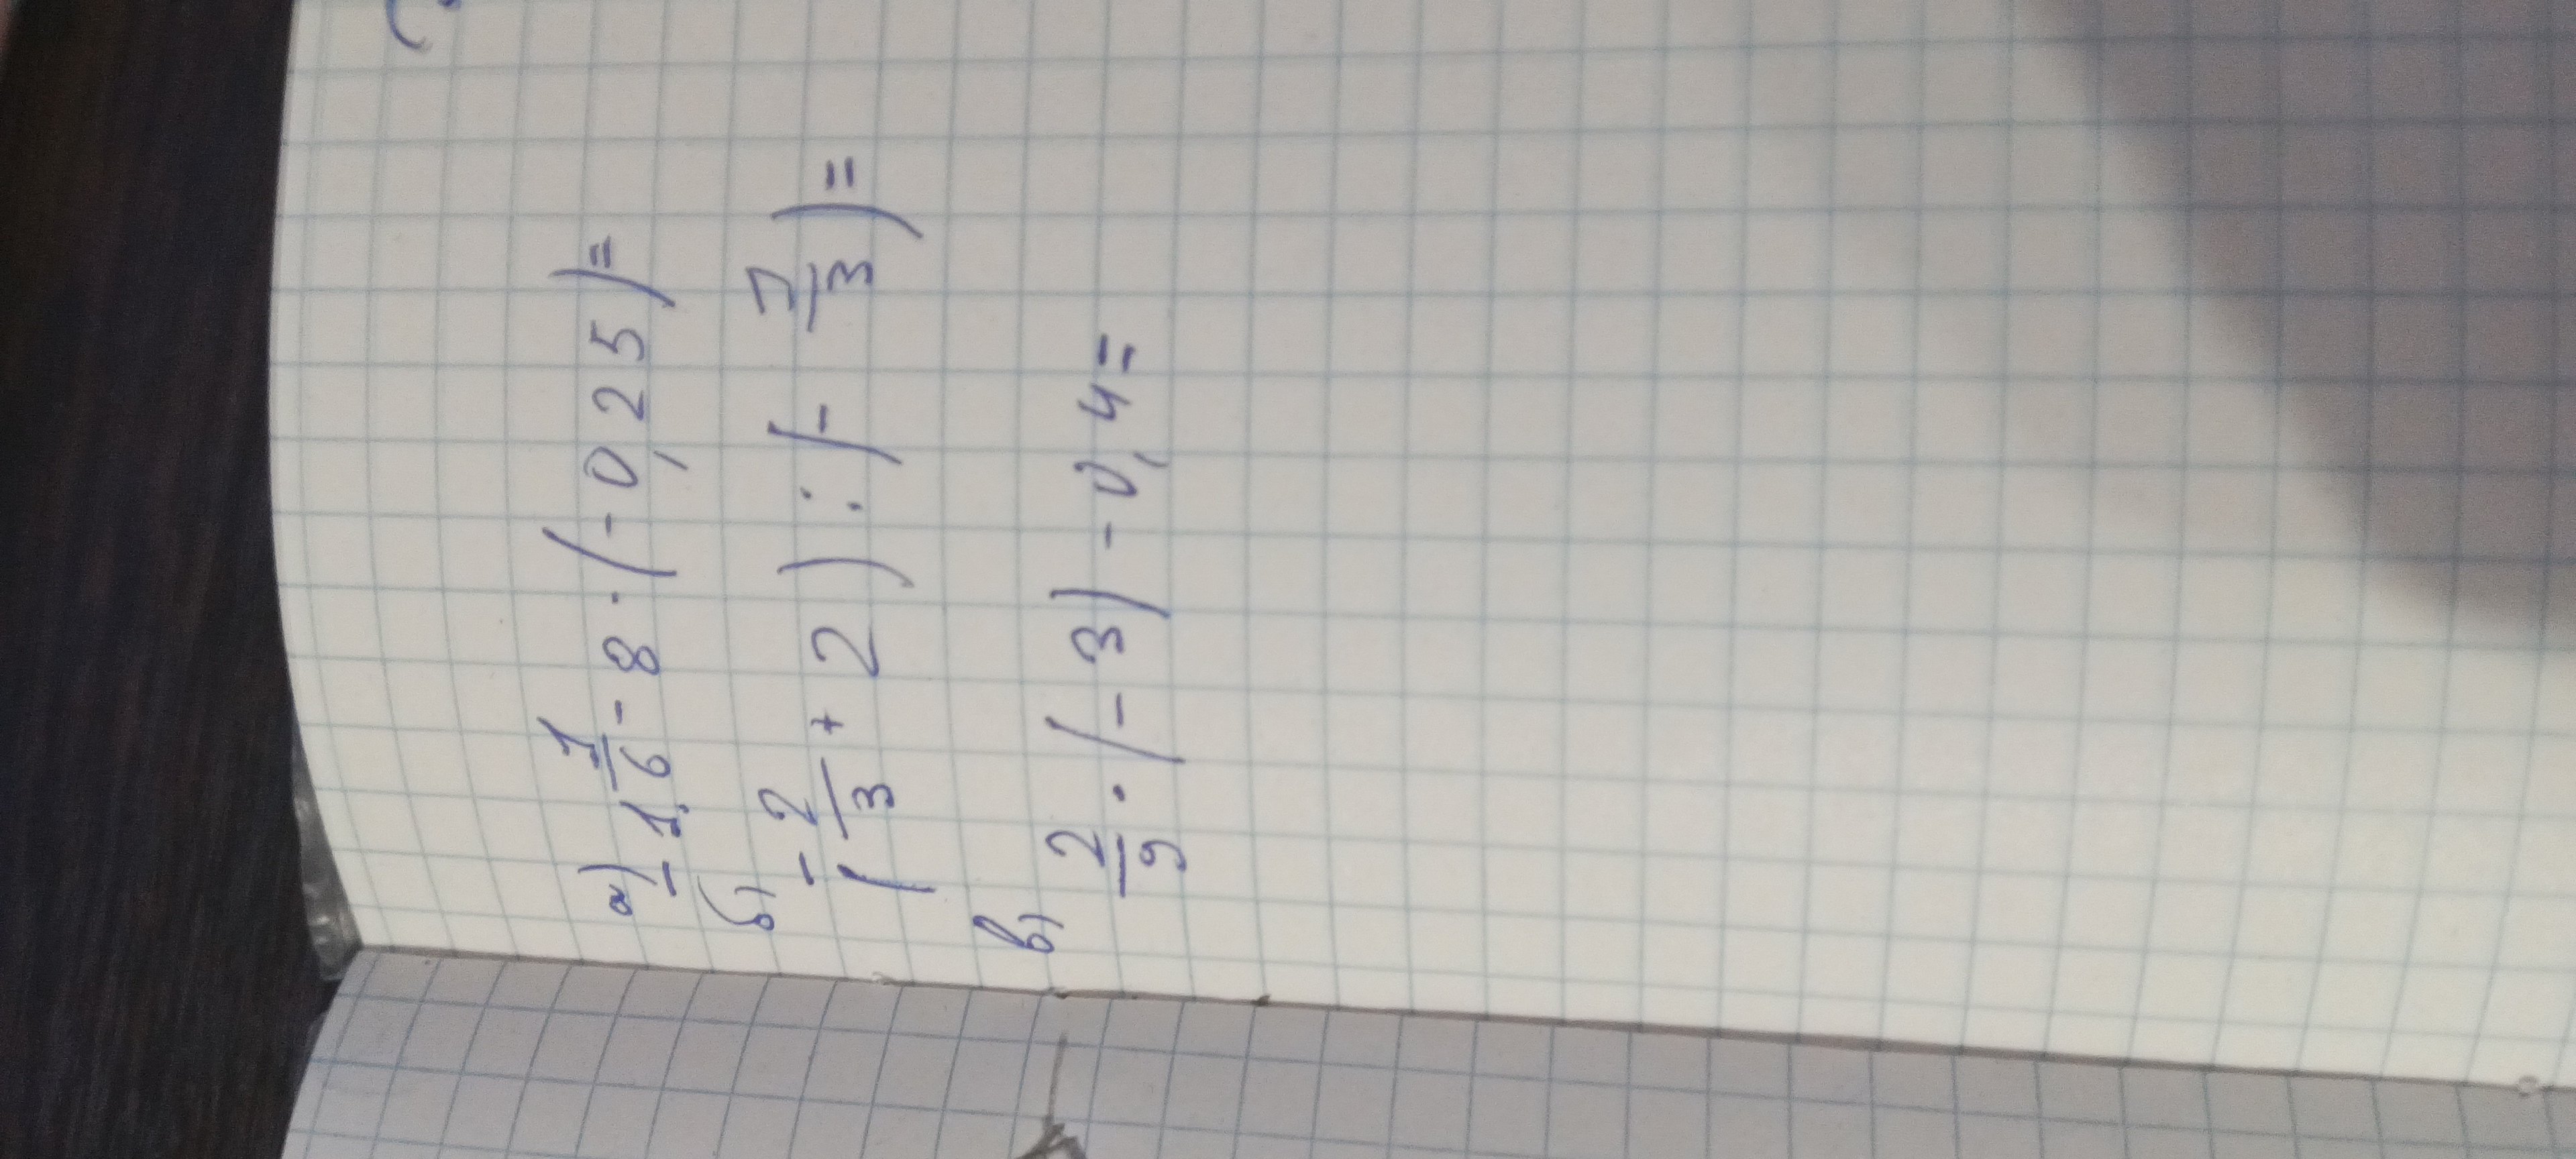 а) -1 1/6 - 8 · (-0,25) =
б) (-2/3 + 2) : (- 1/3) =
в) 2/9 · (-3) - 0,4 =